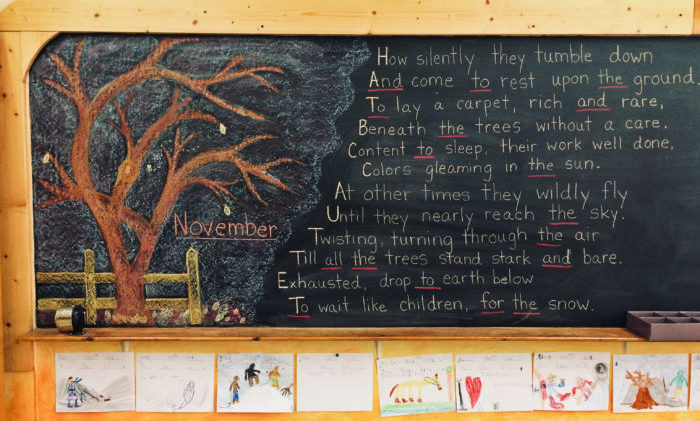 How silently they tumble down
And come to rest upon the ground.
To lay a carpet, rich and rare,
Beneath the trees without a care.
Content to sleep, their work well done,
Colors gleaming in the sun.
At other times they wildly fly
Until they nearly reach the sky.
Twisting, turning through the air
Till all the trees stand stark and bare.
Exhausted, drop to earth below
To wait like children, for the snow.
November